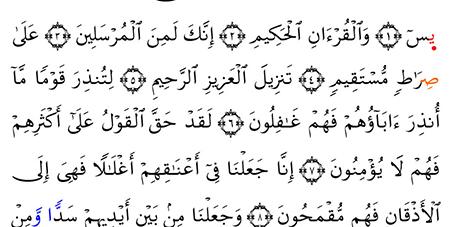 يسٓ ۝١ وَٱلْقُرْءَانِ ٱلْحَكِيمِ ۝٢ إِنَّكَ لَمِنَ ٱلْمُرْسَلِينَ ۝٣ عَلَىٰ
صِرَٰطٍ مُّسْتَقِيمٍ ۝٤ تَنزِيلَ ٱلْعَزِيزِ ٱلرَّحِيمِ ۝٥ لِتُنذِرَ قَوْمًا مَّآ
أُنذِرَ ءَابَآؤُهُمْ فَهُمْ غَٰفِلُونَ ۝٦ لَقَدْ حَقَّ ٱلْقَوْلُ عَلَىٰٓ أَكْثَرِهِمْ
فَهُمْ لَا يُؤْمِنُونَ ۝٧ إِنَّا جَعَلْنَا فِىٓ أَعْنَٰقِهِمْ أَغْلَٰلًا فَهِىَ إِلَى
ٱلْأَذْقَانِ فَهُم مُّقْمَحُونَ ۝٨ وَجَعَلْنَا مِنۢ بَيْنِ أَيْدِيهِمْ سَدًّا وَمِنْ